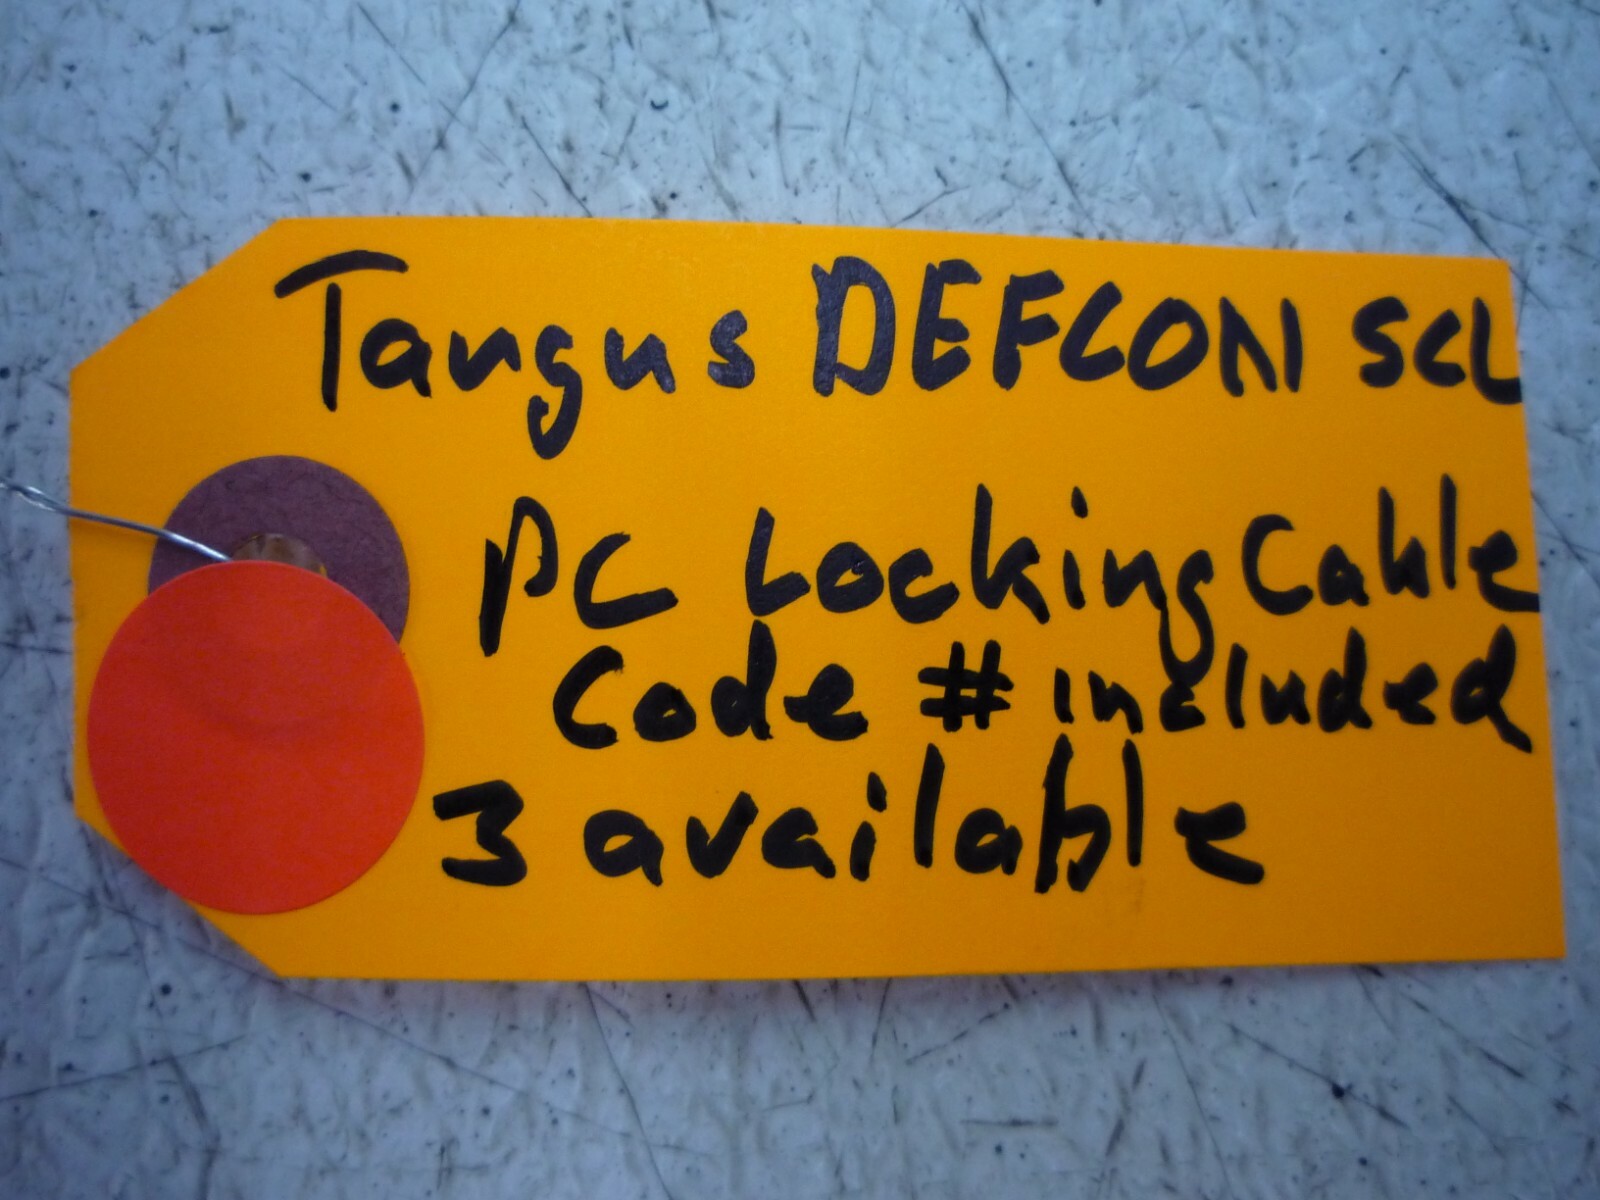 Tangus DEFCON SCL
PC Locking Cable
Code # included
3 available